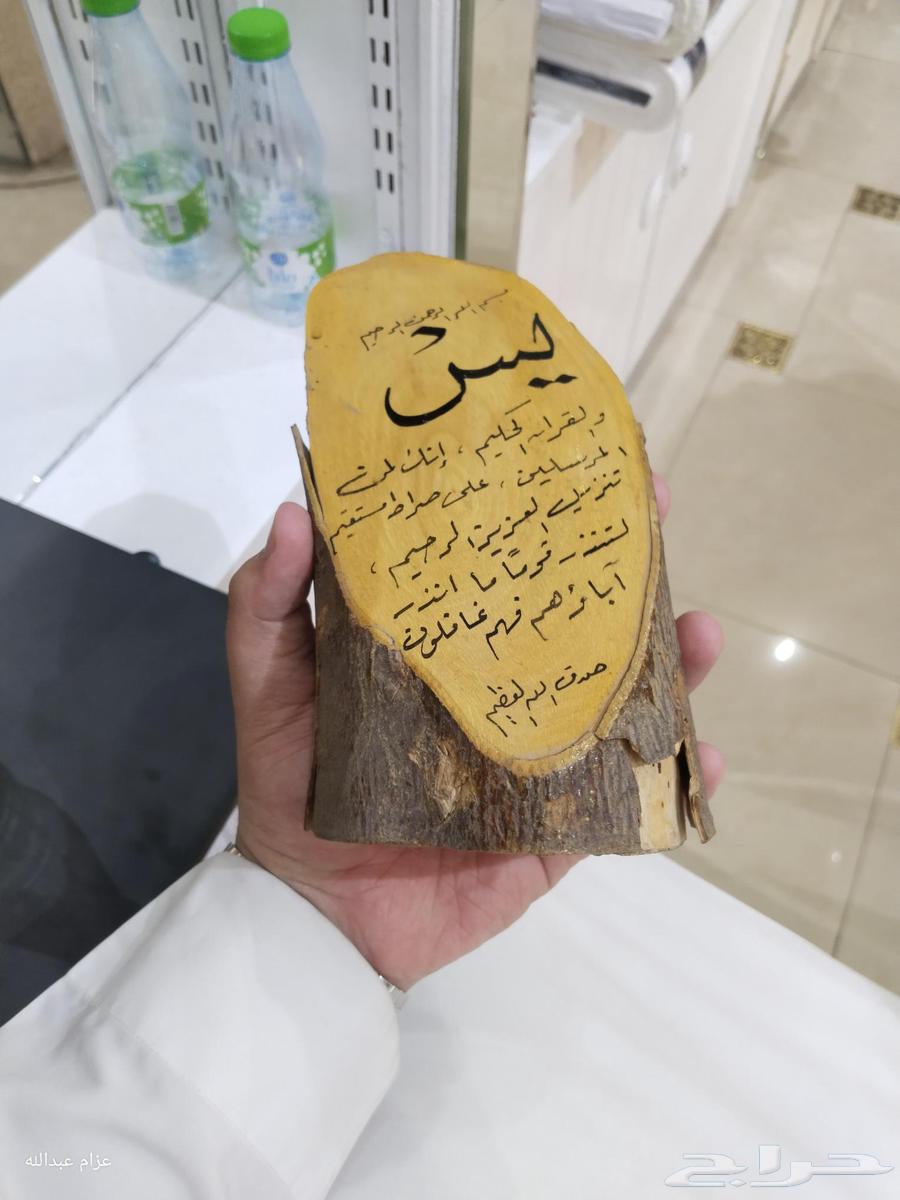 بسم الله الرحمن الرحيم
يسٓ
والقرآن الحكيم ، إنك لمن
المرسلين ، على صراط مستقيم
تنزيل العزيز الرحيم ،
لتنذر قومًا ما انذر
آباؤهم فهم غافلون
صدق الله العظيم
عزام عبدالله
حراج